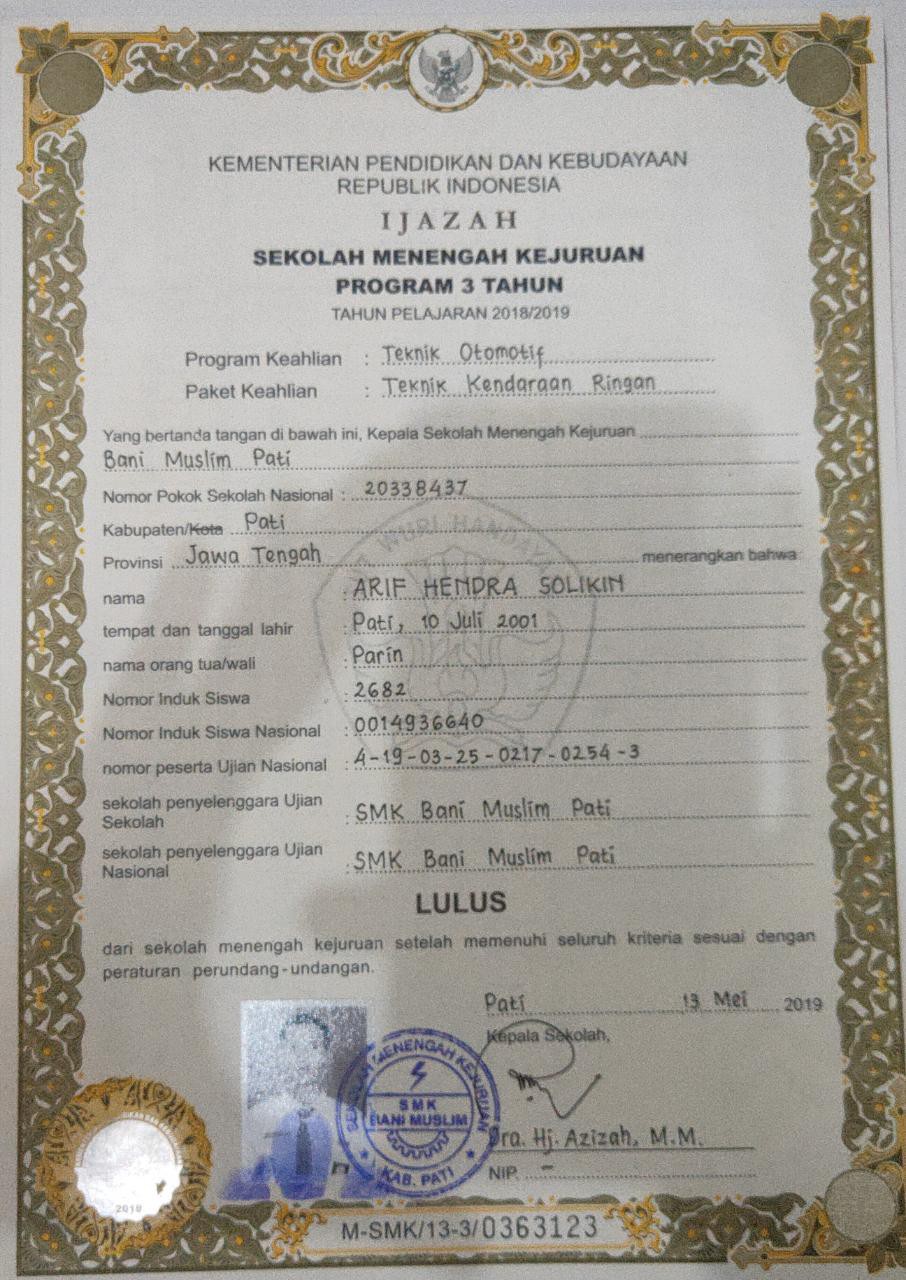 KEMENTERIAN PENDIDIKAN DAN KEBUDAYAAN
REPUBLIK INDONESIA
IJAZAH
SEKOLAH MENENGAH KEJURUAN
PROGRAM 3 TAHUN
TAHUN PELAJARAN 2018/2019
Program Keahlian : Teknik Otomotif
Paket Keahlian : Teknik Kendaraan Ringan
Yang bertanda tangan di bawah ini, Kepala Sekolah Menengah Kejuruan
Bani Muslim Pati
Nomor Pokok Sekolah Nasional : 20338437
Kabupaten/Kota Pati
Provinsi Jawa Tengah menerangkan bahwa
nama : ARIF HENDRA SOLIKIN
tempat dan tanggal lahir : Pati, 10 Juli 2001
nama orang tua/wali : Parin
Nomor Induk Siswa : 2682
Nomor Induk Siswa Nasional : 0014936640
nomor peserta Ujian Nasional : 4-19-03-25-0217-0254-3
sekolah penyelenggara Ujian
Sekolah : SMK Bani Muslim Pati
sekolah penyelenggara Ujian
Nasional : SMK Bani Muslim Pati
LULUS
dari sekolah menengah kejuruan setelah memenuhi seluruh kriteria sesuai dengan
peraturan perundang-undangan.
Pati 13 Mei 2019
Kepala Sekolah,
SEKOLAH MENENGAH KEJURUAN
SMK
BANI MUSLIM
KAB. PATI
Dra. Hj. Azizah, M.M.
NIP. -
2019
M-SMK/13-3/0363123